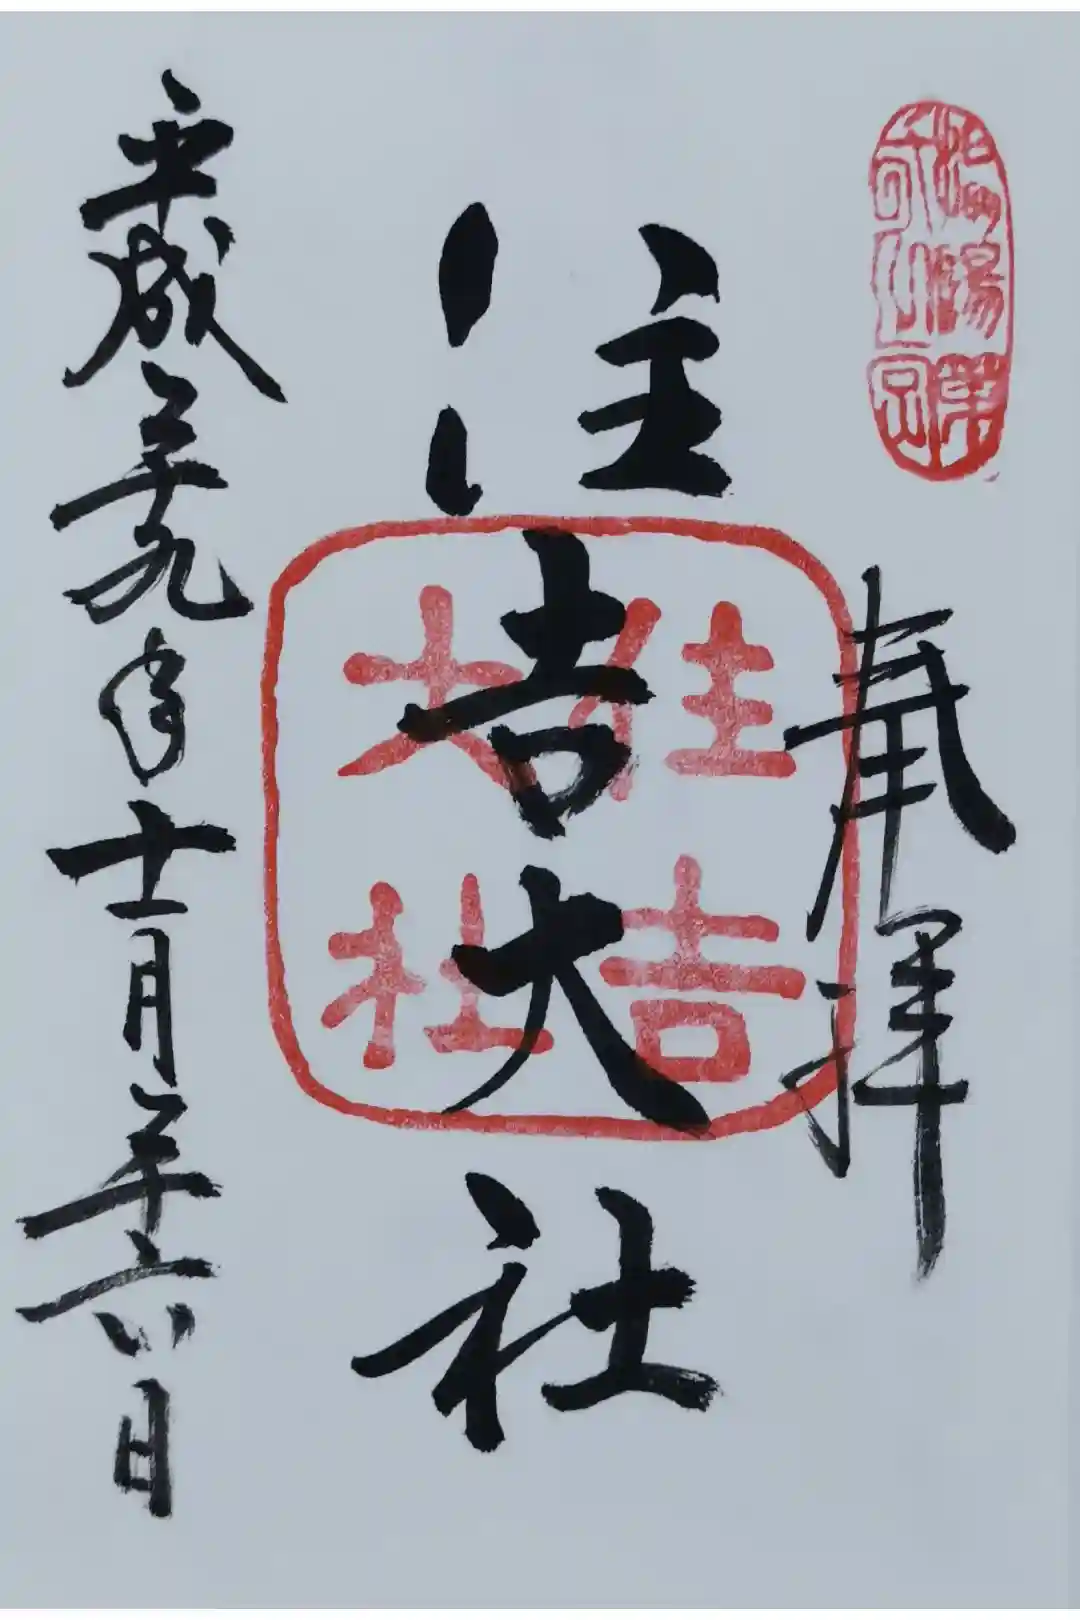 奉拝
住吉大社
住吉
大社
平成二十九年十一月二十六日